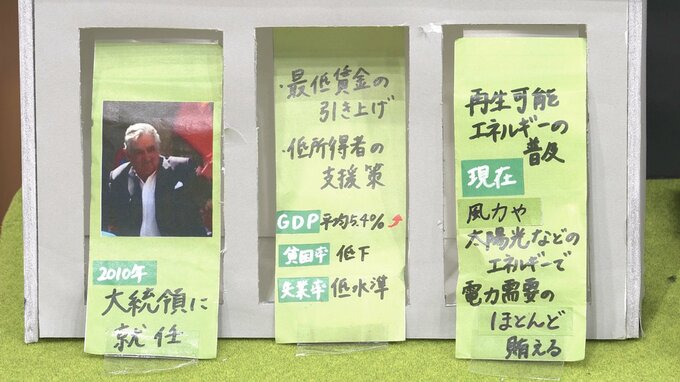 2010年
大統領に
就任
・最低賃金の
引き上げ
・低所得者の
支援策
GDP 平均5.4%
貧困率 低下
失業率 低水準
再生可能
エネルギーの
普及
現在
風力や
太陽光などの
エネルギーで
電力需要の
ほとんど
賄える